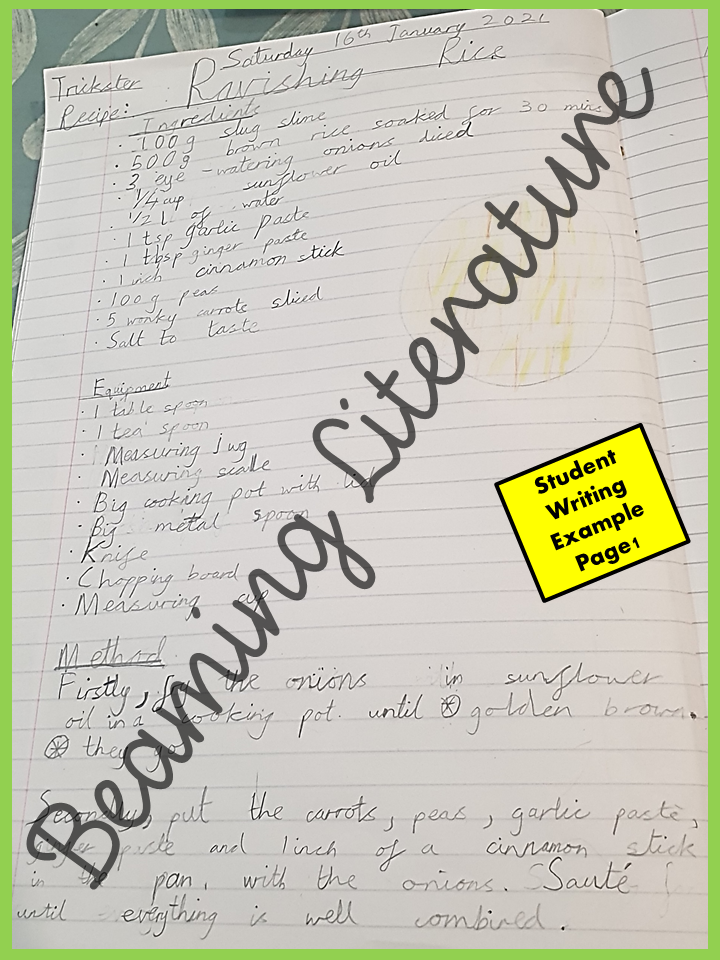 Saturday 16th January 2021
Trickster
Recipe: Ravishing Rice
Ingredients
· 100g slug slime
· 500g brown rice soaked for 30 mins
· 3 eye-watering onions diced
· 1/4 cup sunflower oil
· 1/2 l of water
· 1 tsp garlic paste
· 1 tbsp ginger paste
· 1 inch cinnamon stick
· 100g peas
· 5 wonky carrots sliced
· Salt to taste
Equipment
· 1 table spoon
· 1 tea spoon
· Measuring jug
· Measuring scalle
· Big cooking pot with lid
· Big metal spoon
· Knife
· Chopping board
· Measuring cup
Student
Writing
Example
Page1
Method
Firstly, fry the onions in sunflower
oil in a cooking pot until * golden brown.
* they go
Secondly, put the carrots, peas, garlic paste,
ginger paste and 1inch of a cinnamon stick
in the pan, with the onions. Sauté
until everything is well combined.
Beaming Literature